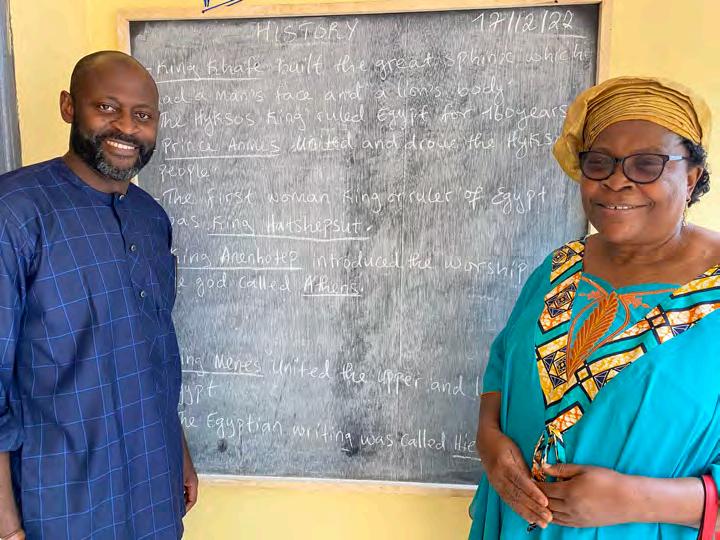 HISTORY 17/12/22
- King Khafe built the great sphinx which
had a man's face and a lion's body.
The Hyksos King ruled Egypt for 160 years
Prince Ahmes united and drove the Hykso
people
- The first woman king or ruler of Egypt
was King Hatshepsut.
King Amenhotep introduced the worship
god called Athens.
King Menes united the upper and
The Egyptian writing was called Hie